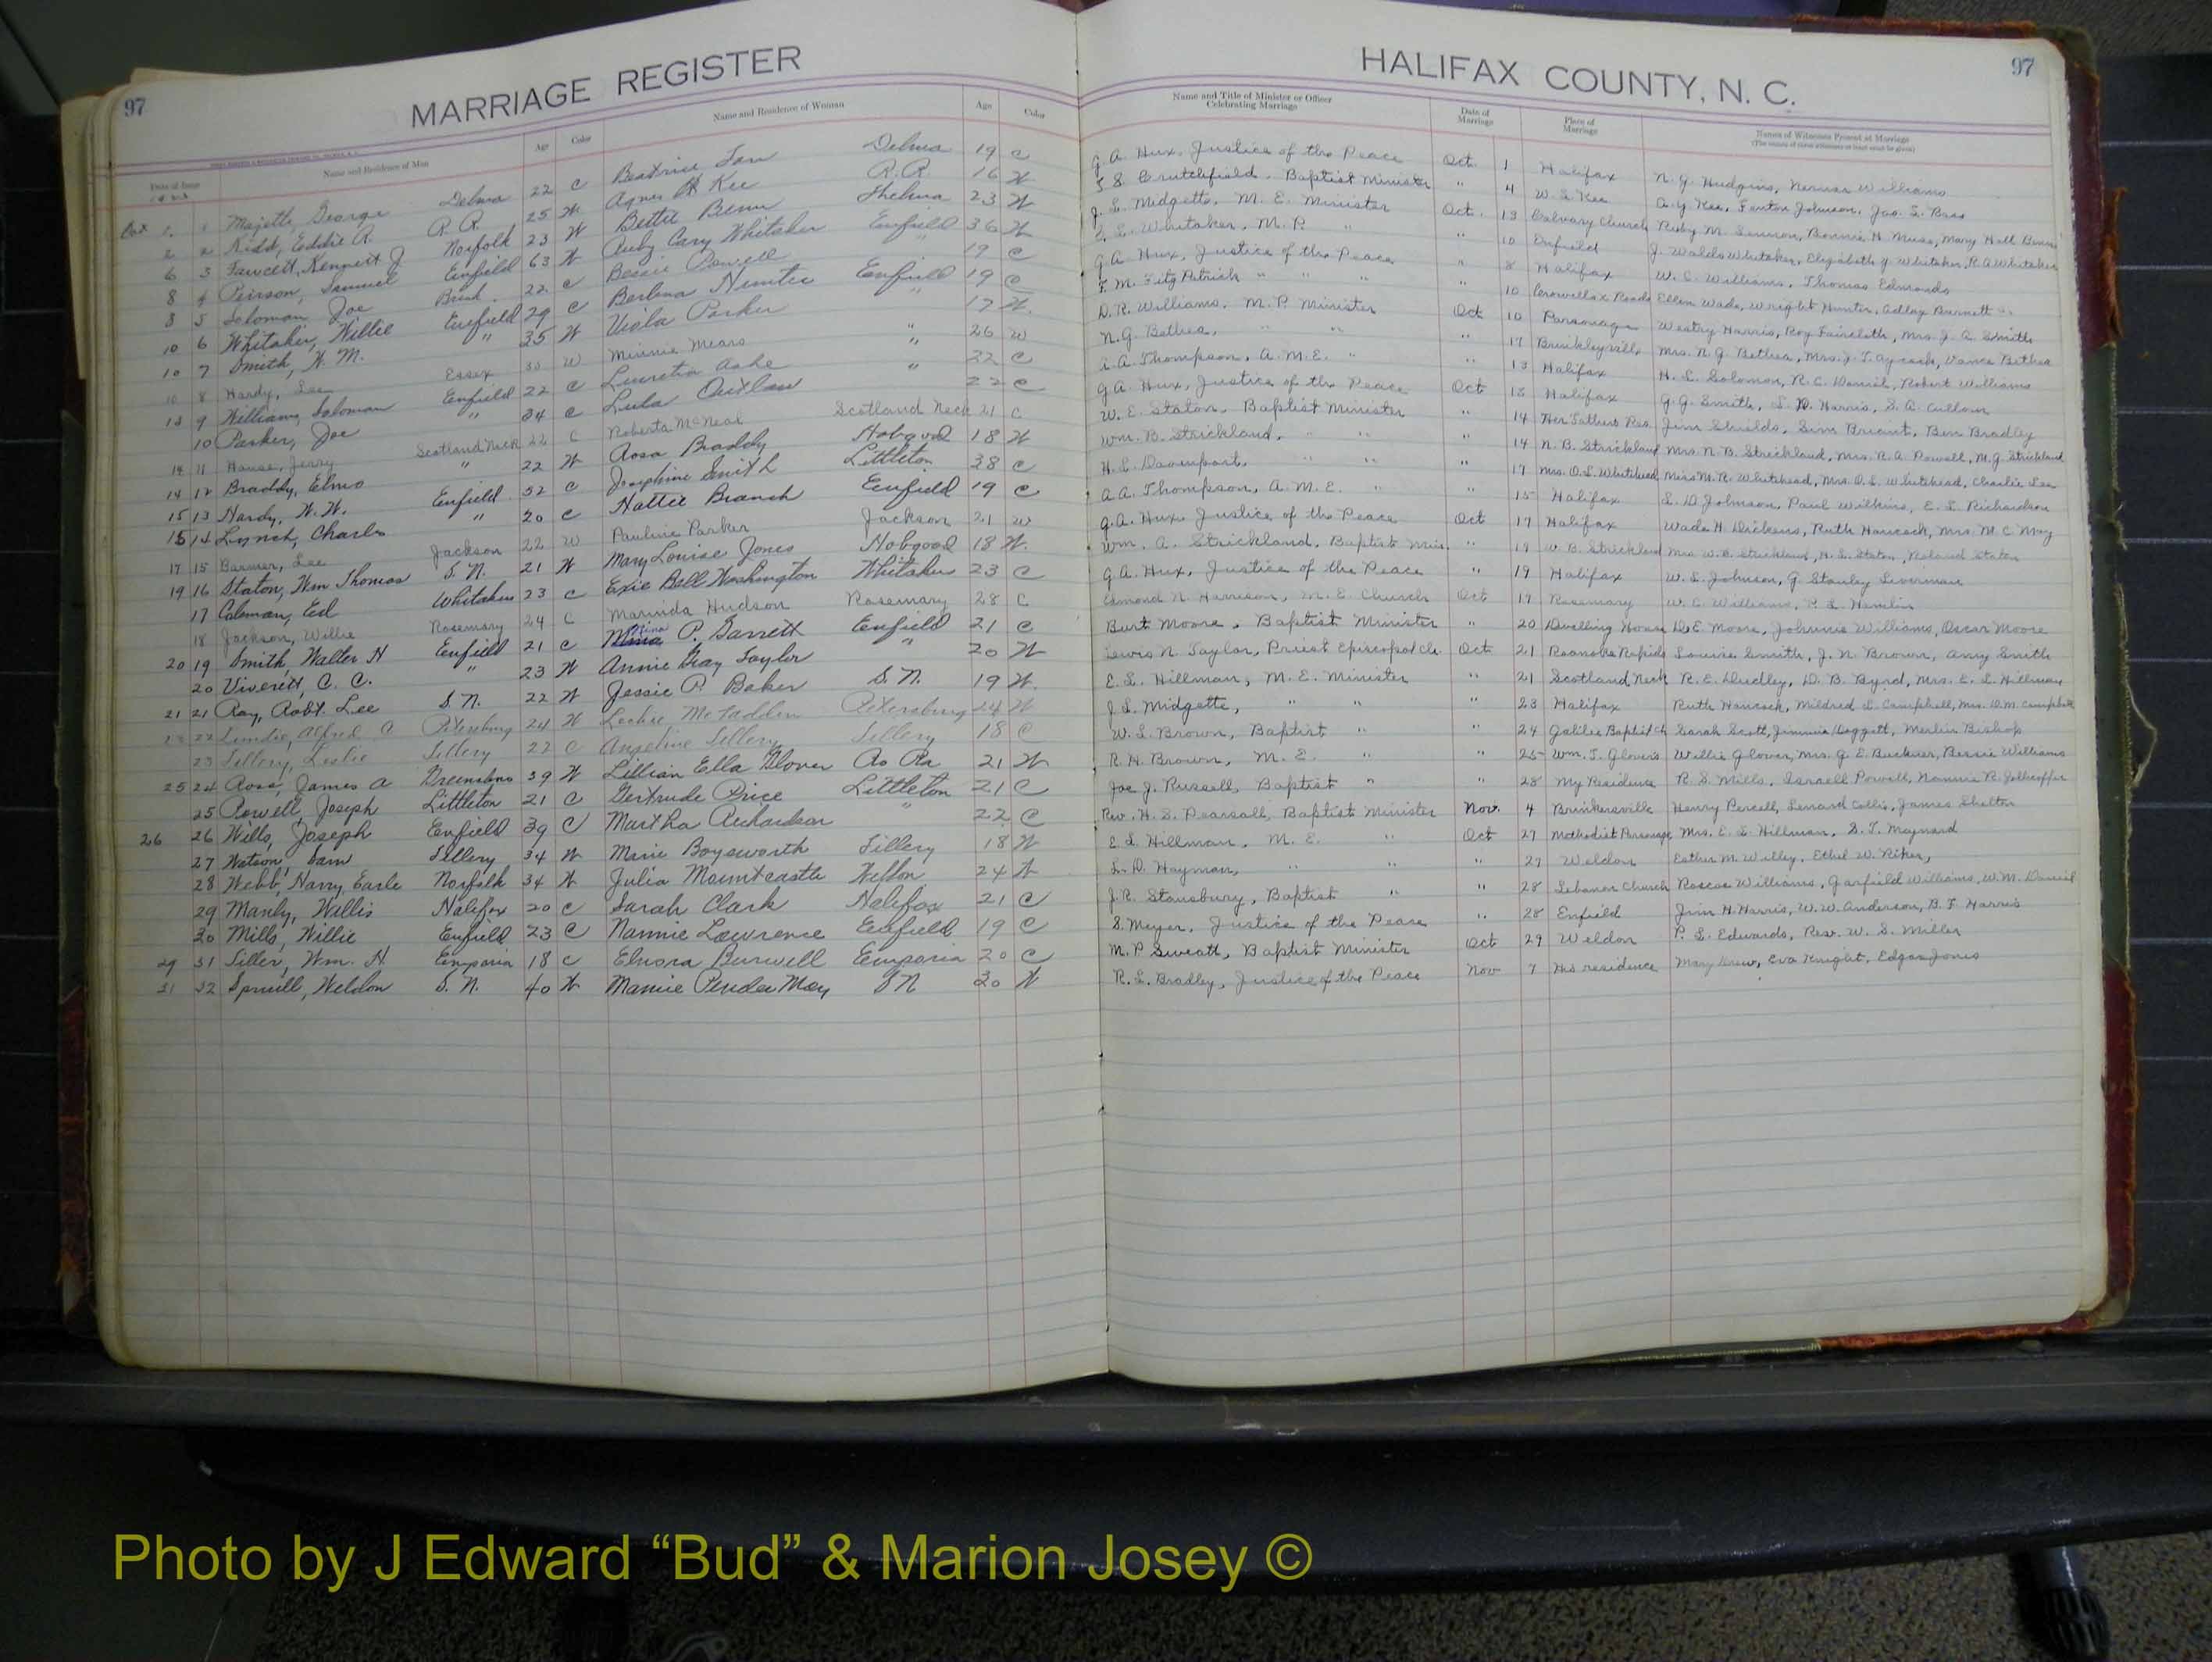 97
MARRIAGE REGISTER
Date of Issue Name and Residence of Man Age Color Name and Residence of Woman Age Color
Oct 1 1 Majette George Delma 22 C Beatrice Delma 19 C
2 2 Kidd, Eddie R. R.R. 25 W Agnes Kee R.R. 16 W
6 3 Fawcett, Kennert J Norfolk 23 W Bettie Thelma 23 W
8 4 Peirson, Samuel Enfield 63 W Ruby Cary Whitaker Enfield 36 W
8 5 Soloman Joe 22 C Bessie Powell " 19 C
10 6 Whitaker, Willie Enfield 29 C Enfield 19 C
10 7 Smith, W. M. " 35 W Viola Parker " 17 W.
10 8 Hardy, Lee Essex 30 W Minnie Mears " 26 W
13 9 Williams, Soloman Enfield 22 C Lucretia Ashe " 22 C
10 Parker, Joe " 24 C Lula Outlaw 22 C
14 11 House, Jerry Scotland Neck 22 C Roberta McNeal Scotland Neck 21 C
14 12 Braddy, Elmo " 22 W Rosa Braddy Hobgood 18 W
15 13 Hardy, W. W. Enfield 52 C Josephine Smith Littleton 38 C
15 14 Lynch, Charles " 20 C Hattie Branch Enfield 19 C
17 15 Barmer, Lee Jackson 22 W Pauline Parker Jackson 21 W
19 16 Staton, Wm Thomas S. N. 21 W Mary Louise Jones Hobgood 18 W.
17 Coleman, Ed Whitakers 23 C Exie Bell Washington Whitakers 23 C
18 Jackson, Willie Rosemary 24 C Marinda Hudson Rosemary 28 C
20 19 Smith, Walter H Enfield 21 C P. Garrett Enfield 21 C
20 Viverett, C. C. " 23 W Annie Gray Taylor " 20 W
21 21 Ray, Robt. Lee S. N. 22 W Jessie P. Baker S. N. 19 W.
22 Alfred A Petersburg 24 W McFadden Petersburg 24 W
23 Tillery, Leslie Tillery 22 C Angeline Tillery Tillery 18 C
25 24 Ross, James A Greensboro 39 W Lillian Ella Glover Ro Ra 21 W
25 Powell, Joseph Littleton 21 C Gertrude Price Littleton 21 C
26 26 Wills, Joseph Enfield 39 C Martha Richardson " 22 C
27 Watson, Sam Tillery 34 W Marie Boysworth Tillery 18 W
28 Webb, Harry Earle Norfolk 34 W Julia Mountcastle Weldon 24 W
29 Manly, Willis Halifax 20 C Sarah Clark Halifax 21 C
30 Mills, Willie Enfield 23 C Nannie Lawrence Enfield 19 C
29 31 Siller, Wm. H. Emporia 18 C Elnora Burwell Emporia 20 C
31 32 Spruill, Weldon S. N. 40 W Mamie Pender May S N 30 W
HALIFAX COUNTY, N. C. 97
Name and Title of Minister or Officer Celebrating Marriage Date of Marriage Place of Marriage Names of Witnesses Present at Marriage
G. A. Hux, Justice of the Peace Oct. 1 Halifax N. G. Hudgins, Norman Williams
Crutchfield. Baptist Minister " 4 W. S. Kee A. Y. Kee, Fenton Johnson,
J. L. Midgette, M. E. Minister Oct. 13 Calvary Church Ruby M. Bonnie H. Muse, Mary Hall
L. Whitaker, M. P. " " 10 Enfield J. Waldo Whitaker, Elizabeth Y. Whitaker, R. A. Whitaker
G. A. Hux, Justice of the Peace " 8 Halifax W. C. Williams, Thomas Edmonds
F. M. FitzPatrick " " " " 10 Crowells x Roads Ellen Wade, Wright Hunter, Adlax Burnett
D. R. Williams, M. P. Minister Oct 10 Parsonage Westry Harris, Roy Faircloth, Mrs. J. A. Smith
N. G. Bethea, " " " 17 Brinkleyville Mrs. N. G. Bethea, Mrs. J. T. Aycock, Vance Bethea
A. A. Thompson, A. M. E. " " 13 Halifax H. L. Solomon, R. C. Daniel, Robert Williams
G. A. Hux, Justice of the Peace Oct 18 Halifax G. G. Smith, Harris, S. A. Cullom
W. E. Staton, Baptist Minister " 14 Her Fathers Res Jim Shields, Sim Briant, Ben Bradley
Wm. B. Strickland, " " " 14 N. B. Strickland Mrs N. B. Strickland, Mrs. R. A. Powell, M. G. Strickland
H. L. Davenport, " " " 17 Mrs. O. L. Whitehead Miss M. R. Whitehead, Mrs. O. L. Whitehead, Charlie Lee
A. A. Thompson, A. M. E. " " 15 Halifax L. D. Johnson, Paul Wilkins, E. L. Richardson
G. A. Hux Justice of the Peace Oct 17 Halifax Wade H. Dickens, Ruth Hancock, Mrs. M. C. May
Wm. A. Strickland, Baptist Min. " 19 W. B. Strickland Mrs W. B. Strickland, H. L. Staton, Roland Staton
G. A. Hux, Justice of the Peace " 19 Halifax W. L. Johnson, G. Stanley Liverman
Edmond N. Harrison, M. E. Church Oct 17 Rosemary W. C. Williams, P. L. Hamlin
Burt Moore, Baptist Minister " 20 Dwelling House D. E. Moore, Johnnie Williams, Oscar Moore
Lewis N. Taylor, Priest Episcopal Ch. Oct 21 Roanoke Rapids Louise Smith, J. N. Brown, Amy Smith
E. L. Hillman, M. E. Minister " 21 Scotland Neck R. E. Dudley, D. B. Byrd, Mrs. E. L. Hillman
J. L. Midgette, " " " 23 Halifax Ruth Hancock, Mildred L. Campbell, Mrs. D. M. Campbell
W. L. Brown, Baptist " " 24 Galilee Baptist Ch Sarah Scott, Jimmie Doggett, Merlin Bishop
R. H. Brown, M. E. " " 25 Wm. T. Glover's Willie Glover, Mrs. G. E. Buckner, Bessie Williams
Joe J. Russell, Baptist " " 28 My Residence R. S. Mills, Israell Powell, Nannie R. Jollicoffer
Rev. H. S. Pearsall, Baptist Minister Nov. 4 Brinkersville Henry Percell, Lenard Collis, James Shelton
E. L. Hillman, M. E. " Oct 27 Methodist Parsonage Mrs. E. L. Hillman, S. T. Maynard
L. D. Hayman, " " " 27 Weldon Esther M. Willey, Ethel W. Riker,
J. R. Stansbury, Baptist " " 28 Lebanon Church Roscoe Williams, Garfield Williams, W. M. Daniel
S. Meyer, Justice of the Peace " 28 Enfield Jim H. Harris, W. W. Anderson, B. F. Harris
M. P. Sweatt, Baptist Minister Oct 29 Weldon P. L. Edwards, Rev. W. S. Miller
R. L. Bradley, Justice of the Peace Nov 7 His residence Mary Drew, Eva Knight, Edgar Jones
Photo by J Edward “Bud” & Marion Josey ©